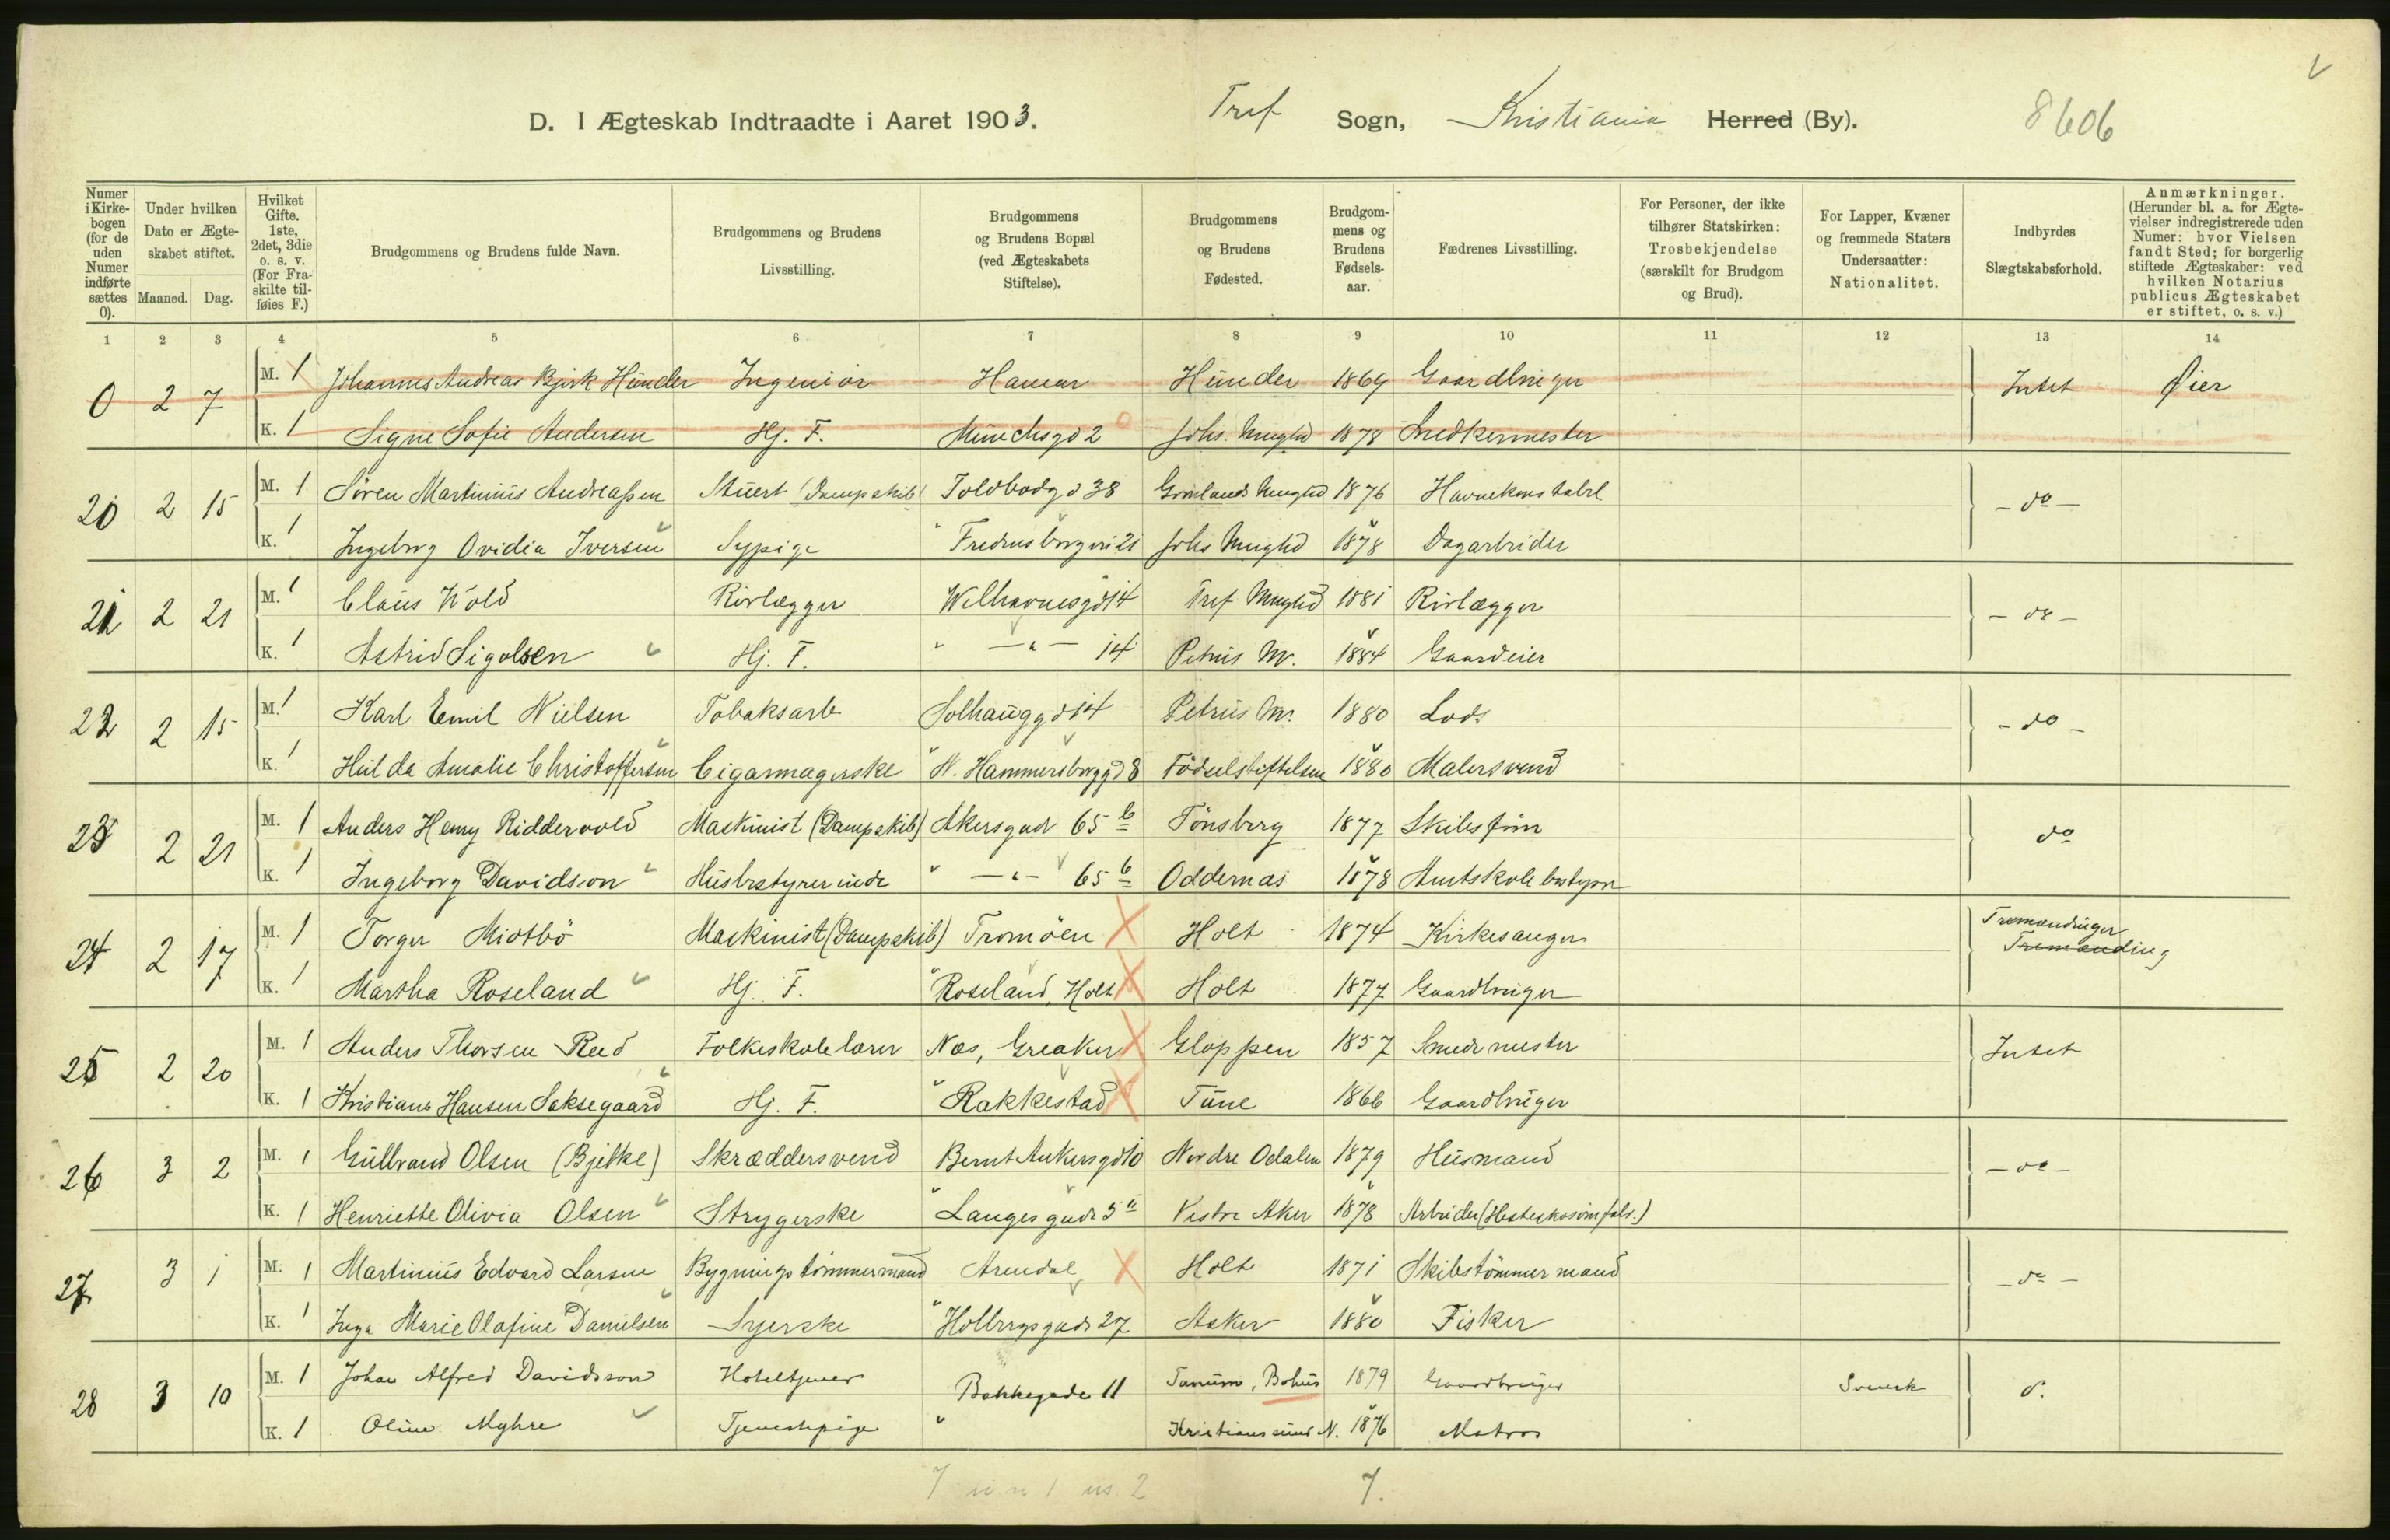 D. I Ægteskab Indtraadte i Aaret 1903. Tref Sogn, Kristiania Herred (By). 8606
Numer i Kirkebogen (for de uden Numer indførte sættes 0).
Under hvilken Dato er Ægteskabet stiftet.
Maaned. Dag.
Hvilket Gifte. 1ste, 2det, 3die o. s. v. (For Fraskilte tilføies F.)
Brudgommens og Brudens fulde Navn.
Brudgommens og Brudens Livsstilling.
Brudgommens og Brudens Bopæl (ved Ægteskabets Stiftelse).
Brudgommens og Brudens Fødested.
Brudgommens og Brudens Fødselsaar.
Fædrenes Livsstilling.
For Personer, der ikke tilhører Statskirken: Trosbekjendelse (særskilt for Brudgom og Brud).
For Lapper, Kvæner og fremmede Staters Undersaatter: Nationalitet.
Indbyrdes Slægtskabsforhold.
Anmærkninger. (Herunder bl. a. for Ægtevielser indregistrerede uden Numer: hvor Vielsen fandt Sted; for borgerlig stiftede Ægteskaber: ved hvilken Notarius publicus Ægteskabet er stiftet, o. s. v.)
1 2 3 4 5 6 7 8 9 10 11 12 13 14
0 2 7 M. 1 Johannes Andreas Bjørk Hunder Ingeniør Hamar Hunder 1869 Gaardbruger Intet Øier
K. 1 Signe Sofie Andersen Hj. F. Munchsgd 2 Johs. Mnghd 1878 Snedkermester
20 2 15 M. 1 Sören Martinius Andreassen Stuert (Dampskib) Toldbodgd 38 Grönlands Mnghd 1876 Havnekonstabel - do -
K. 1 Ingeborg Ovidia Iversen Sypige Fredensborgvei 21 Johs Mnghd 1878 Dagarbeider
21 2 21 M. 1 Claus Wold Rörlægger Welhavnesgd 14 Tref Mnghd 1881 Rörlægger - do -
K. 1 Astrid Sigolsen Hj. F. " - " - 14 Petrus M. 1884 Gaardeier
22 2 15 M. 1 Karl Emil Nielsen Tobaksarb Solhauggd 14 Petrus M. 1880 Lods - do -
K. 1 Hulda Amalie Christoffersen Cigarmagerske N. Hammersborggd 8 Födselstiftelsen 1880 Malersvend
23 2 21 M. 1 Anders Henry Riddervold Maskinist (Dampskib) Akersgade 65 b Tönsberg 1877 Skibsförer do
K. 1 Ingeborg Davidson Husbestyrerinde " - " - 65 b Oddernæs 1878 Amtskolebestyrer
24 2 17 M. 1 Torger Midtbö Maskinist (Dampskib) Tromöen Holt 1874 Kirkesanger Tremændinger
Tremænding
K. 1 Martha Roseland Hj. F. Roseland, Holt Holt 1877 Gaardbruger
25 2 20 M. 1 Anders Thorsen Reed Folkeskolelærer Næs, Greaker Gloppen 1857 Smedmester Intet
K. 1 Kristiane Hansen Saksegaard Hj. F. Rakkestad Tune 1866 Gaardbruger
26 3 2 M. 1 Gulbrand Olsen (Bjelke) Skræddersvend Bernt Ankersgd 10 Nordre Odalen 1879 Husmand - do -
K. 1 Henriette Olivia Olsen Strygerske Langesgade 5 II Vestre Aker 1878 Arbeider (Hesteskosömfabr.)
27 3 1 M. 1 Martinius Edvard Larsen Bygningstömmermand Arendal Holt 1871 Skibstömmermand - do -
K. 1 Inga Marie Olafine Danielsen Syerske Holbergsgade 27 Asker 1880 Fisker
28 3 10 M. 1 Johan Alfred Davidsson Hoteltjener Bakkegade 11 Tanum, Bohus 1879 Gaardbruger Svensk d.
K. 1 Oline Myhre Tjenestepige " Kristianssund N. 1876 Matros
7.